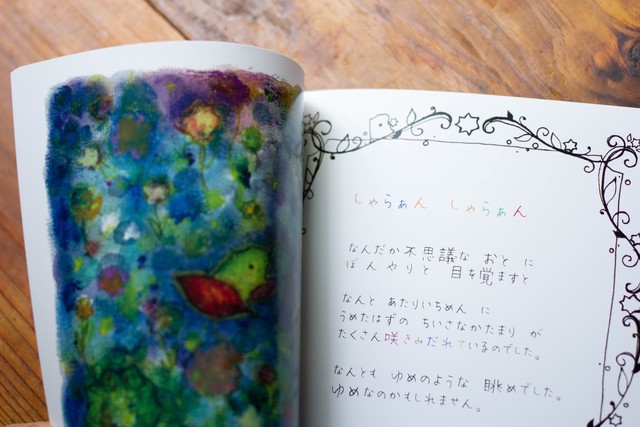 しゃらぁん しゃらぁん
なんだか不思議な おと に
ぼんやりと 目を覚ますと
なんと あたりいちめん に
うめたはずの ちいさなかたまり が
たくさん咲きみだれているのでした。
なんとも ゆめのような 眺めでした。
ゆめなのかもしれません。